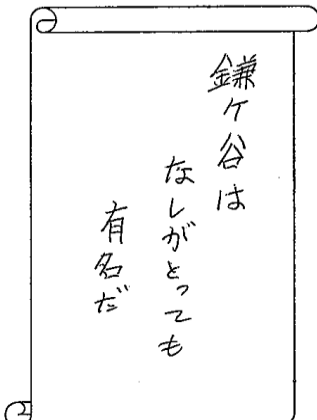 鎌ケ谷は
なしがとっても
有名だ